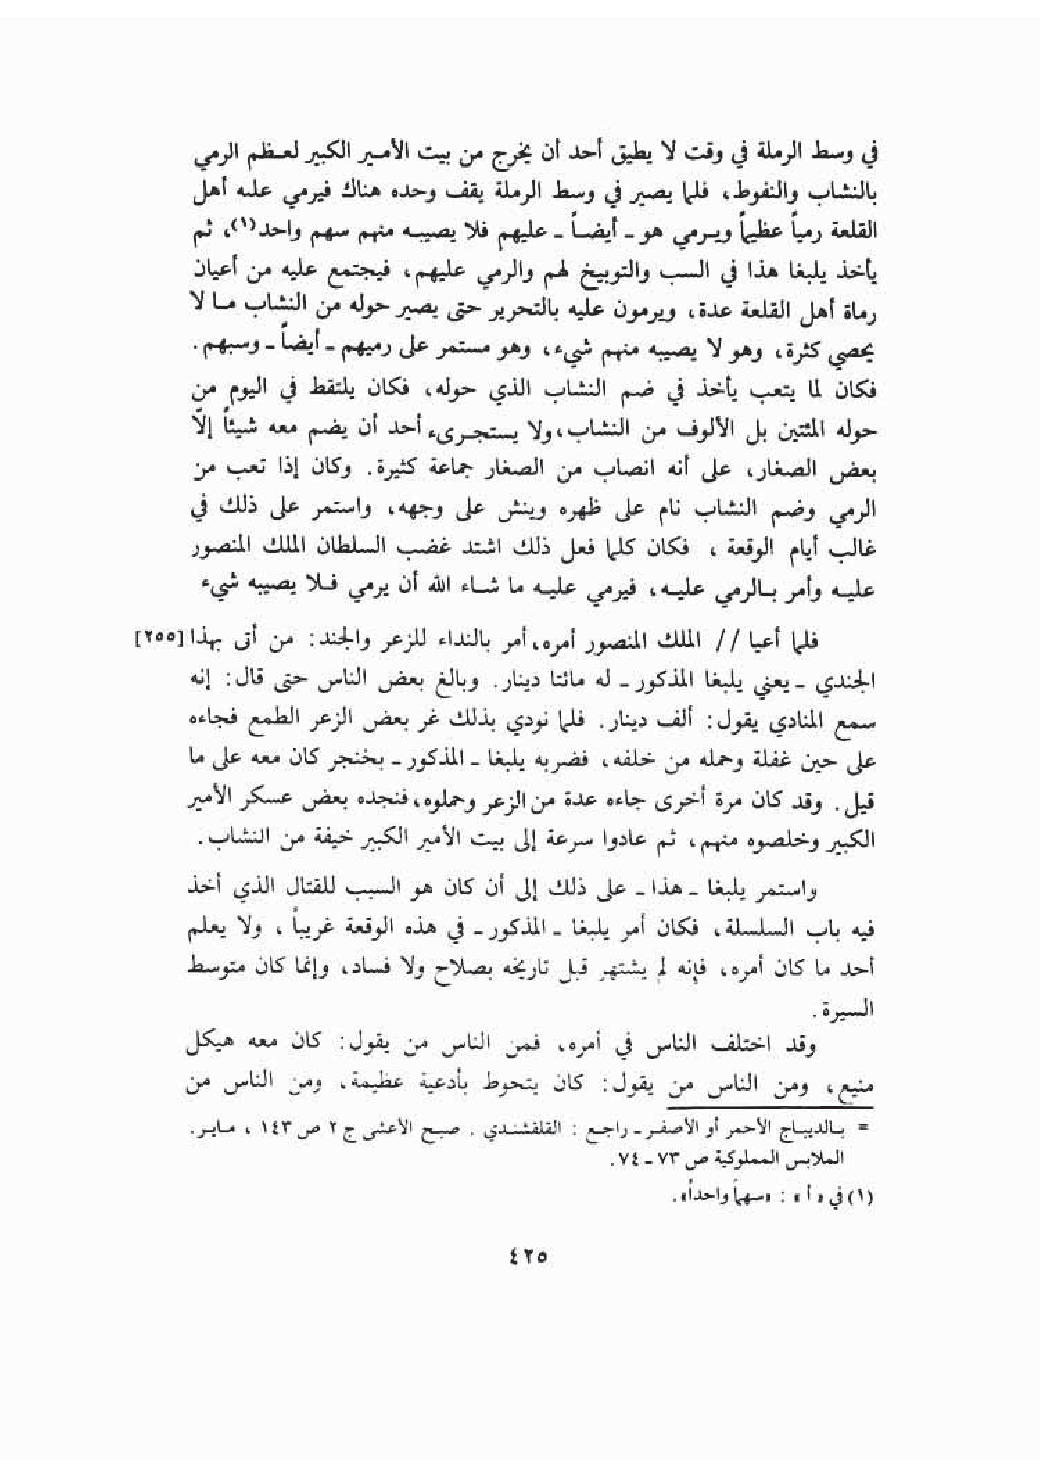 في وسط الرملة في وقت لا يطيق أحد أن يخرج من بيت الأمير الكبير لعظم الرمي
بالنشاب والنفوط، فلما يصير في وسط الرملة يقف وحده هناك فيرمي عليه أهل
القلعة رمياً عظيماً ويرمي هو ـ أيضاً ـ عليهم فلا يصيبه منهم سهم واحد(١)، ثم
يأخذ يلبغا هذا في السب والتوبيخ لهم والرمي عليهم، فيجتمع عليه من أعيان
رماة أهل القلعة عدة، ويرمون عليه بالتحرير حتى يصير حوله من النشاب ما لا
يحصي كثرة، وهو لا يصيبه منهم شيء، وهو مستمر على رميهم ـ أيضاً ـ وسبهم.
فكان لما يتعب يأخذ في ضم النشاب الذي حوله، فكان يلتقط في اليوم من
حوله المئتين بل الألوف من النشاب، ولا يستجرىء أحد أن يضم معه شيئاً إلاّ
بعض الصغار، على أنه انصاب من الصغار جماعة كثيرة. وكان إذا تعب من
الرمي وضم النشاب نام على ظهره وينش على وجهه، واستمر على ذلك في
غالب أيام الوقعة ، فكان كلما فعل ذلك اشتد غضب السلطان الملك المنصور
عليه وأمر بالرمي عليه، فيرمي عليه ما شاء الله أن يرمي فلا يصيبه شيء
فلما أعيا // الملك المنصور أمره، أمر بالنداء للزعر والجند: من أتى بهذا [٢٥٥]
الجندي ـ يعني يلبغا المذكور ـ له مائتا دينار. وبالغ بعض الناس حتى قال: إنه
سمع المنادي يقول: ألف دينار. فلما نودي بذلك غر بعض الزعر الطمع فجاءه
على حين غفلة وحمله من خلفه، فضربه يلبغا ـ المذكور ـ بخنجر كان معه على ما
قيل. وقد كان مرة أخرى جاءه عدة من الزعر وحملوه، فنجده بعض عسكر الأمير
الكبير وخلصوه منهم، ثم عادوا سرعة إلى بيت الأمير الكبير خيفة من النشاب.
واستمر يلبغا ـ هذا ـ على ذلك إلى أن كان هو السبب للقتال الذي أخذ
فيه باب السلسلة، فكان أمر يلبغا ـ المذكور ـ في هذه الوقعة غريباً ، ولا يعلم
أحد ما كان أمره، فإنه لم يشتهر قبل تاريخه بصلاح ولا فساد، وإنما كان متوسط
السيرة.
وقد اختلف الناس في أمره، فمن الناس من يقول: كان معه هيكل
منيع، ومن الناس من يقول: كان يتحوط بأدعية عظيمة، ومن الناس من
= بالديباج الأحمر أو الأصفر ـ راجع : القلقشندي . صبح الأعشى ج ٢ ص ١٤٣ ، ماير.
الملابس المملوكية ص ٧٣ ـ ٧٤.
(١) في « أ » : «سهماً واحداً».
٤٢٥